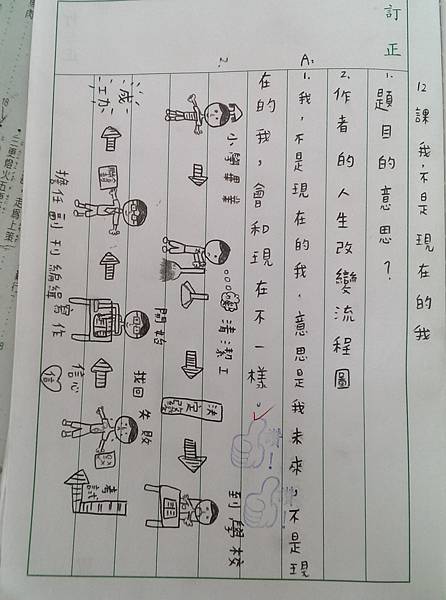 訂正
12課我,不是現在的我
1.題目的意思?
2.作者的人生改變流程圖
A:1.我,不是現在的我,意思是我未來,不是現
在的我,會和現在不一樣。
2.
小學畢業
清潔工
決定
到學校
考試
失敗
找回
信心
信
開始
寫作
擔任副刊編輯
成功
三更燈火五